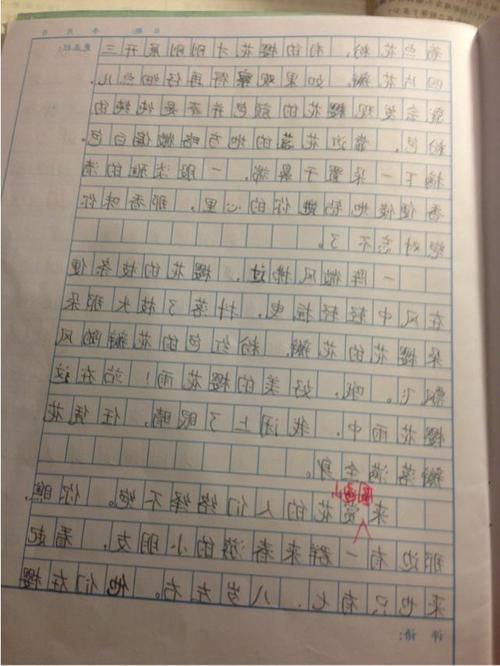 年 月 日
色花粉，有的樱花才刚刚展开三
四片花瓣。如果观察得再仔细点儿，
会发现樱花的颜色并不是纯纯的
粉色。靠近花蕊的地方略微偏白色。
摘下一朵置于鼻端，一股淡雅的清
香便慢慢地钻进你的心里。那香味你
绝对忘不了。
一阵微风拂过，樱花的枝条便
在风中轻轻摇曳，抖落了枝头那朵
朵樱花的花瓣，粉红色的花瓣随风
飘飞。哦，好美的樱花雨！站在这
樱花雨中，我闭上了眼睛，任凭花
瓣落满全身。
来赏花的人们络绎不绝。你瞧，
那边有一群来春游的小朋友，看起
来也只有七、八岁左右。他们在樱
评语：